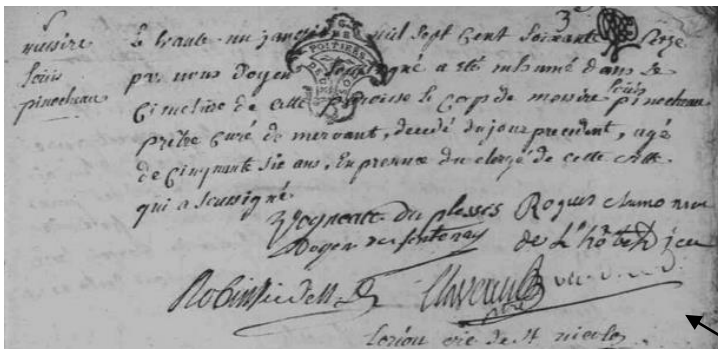 messire
louis
pinocheau
le trante un janvier mil sept cent soixante seize
par nous doyen soussigné a été inhumé dans le
cimetière de cette paroisse le corp de messire louis pinocheau
prêtre curé de mervant, decedé du jour precedent, agé
de cinquante six ans, en presence du clergé de cette ville
qui a soussigné
du plessis
doyen de fontenay
Roguer aumonier
de L'hôtel Dieu
POITIERS
curé de st nicolas